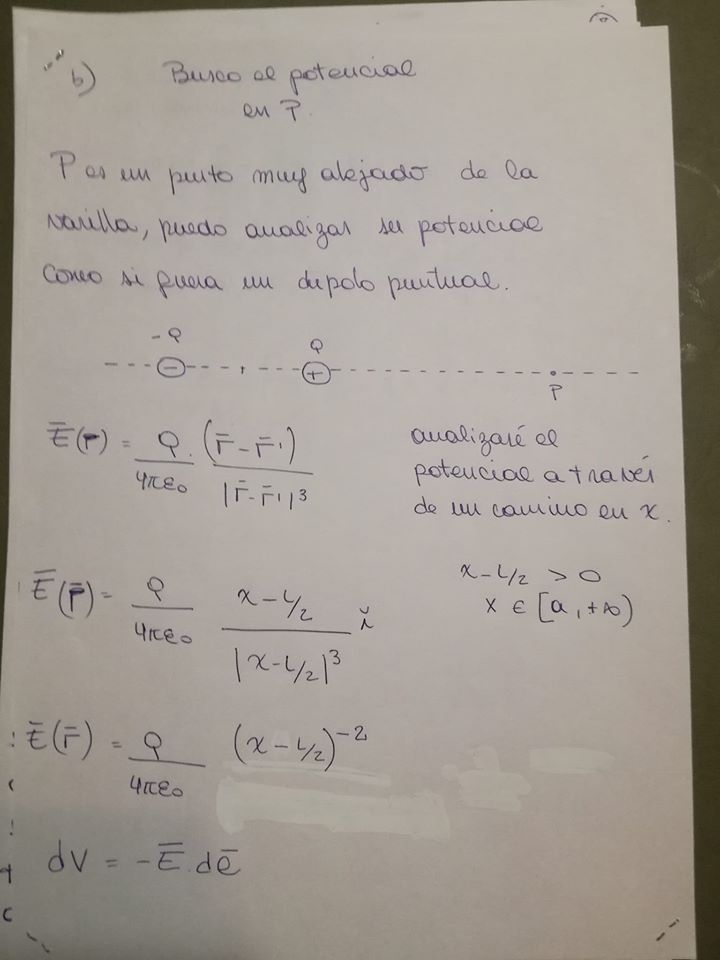 b) Busco el potencial
en P.
P es un punto muy alejado de la
varilla, puedo analizar su potencial
como si fuera un dipolo puntual.
-Q Q
- +
P
Ē(r) = Q/4πε₀ · (r̄ - r̄')/|r̄ - r̄'|³
analizaré el
potencial a través
de un camino en x.
Ē(r̄) = Q/4πε₀ (x - L/2)/|x - L/2|³ ĭ
x - L/2 > 0
x ∈ [a, +∞)
Ē(r̄) = Q/4πε₀ (x - L/2)⁻²
dV = -Ē.dē